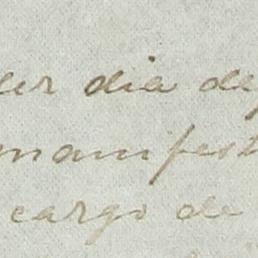 er dia de
manifest
cargo de